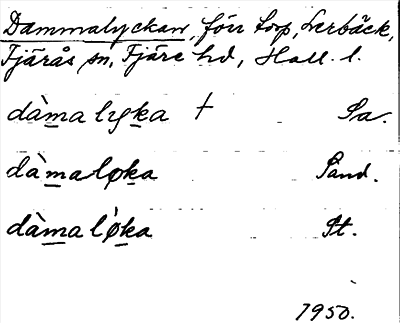 Dammalyckan, förr torp, Lerbäck,
Fjärås sn, Fjäre hd, Hall. l.
dàmalyka † Sa.
dàmaløka Sand.
dàmaløka St.
1950.